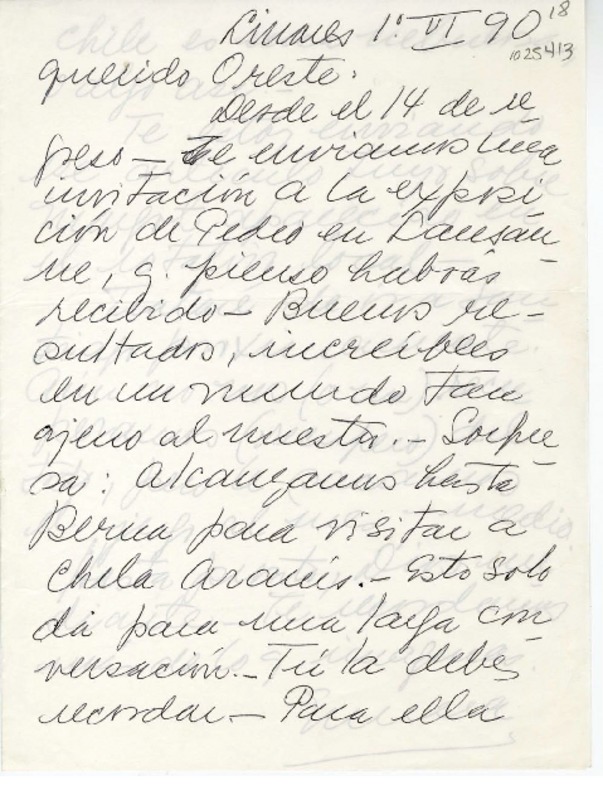 Linares 1º. VI 90
18
1025413
querido Oreste:
Desde el 14 de re
greso — Te enviamos una
invitación a la exposi
ción de Pedro en Lausan-
ne, q. pienso habrás
recibido — Buenos re-
sultados, increíbles
en un mundo tan
ajeno al nuestro. — Sorpre
sa: alcanzamos hasta
Berna para visitar a
Chela Aranís. — Esto solo
dá para una larga con
versación. — Tú la debes
recordar — Para ella